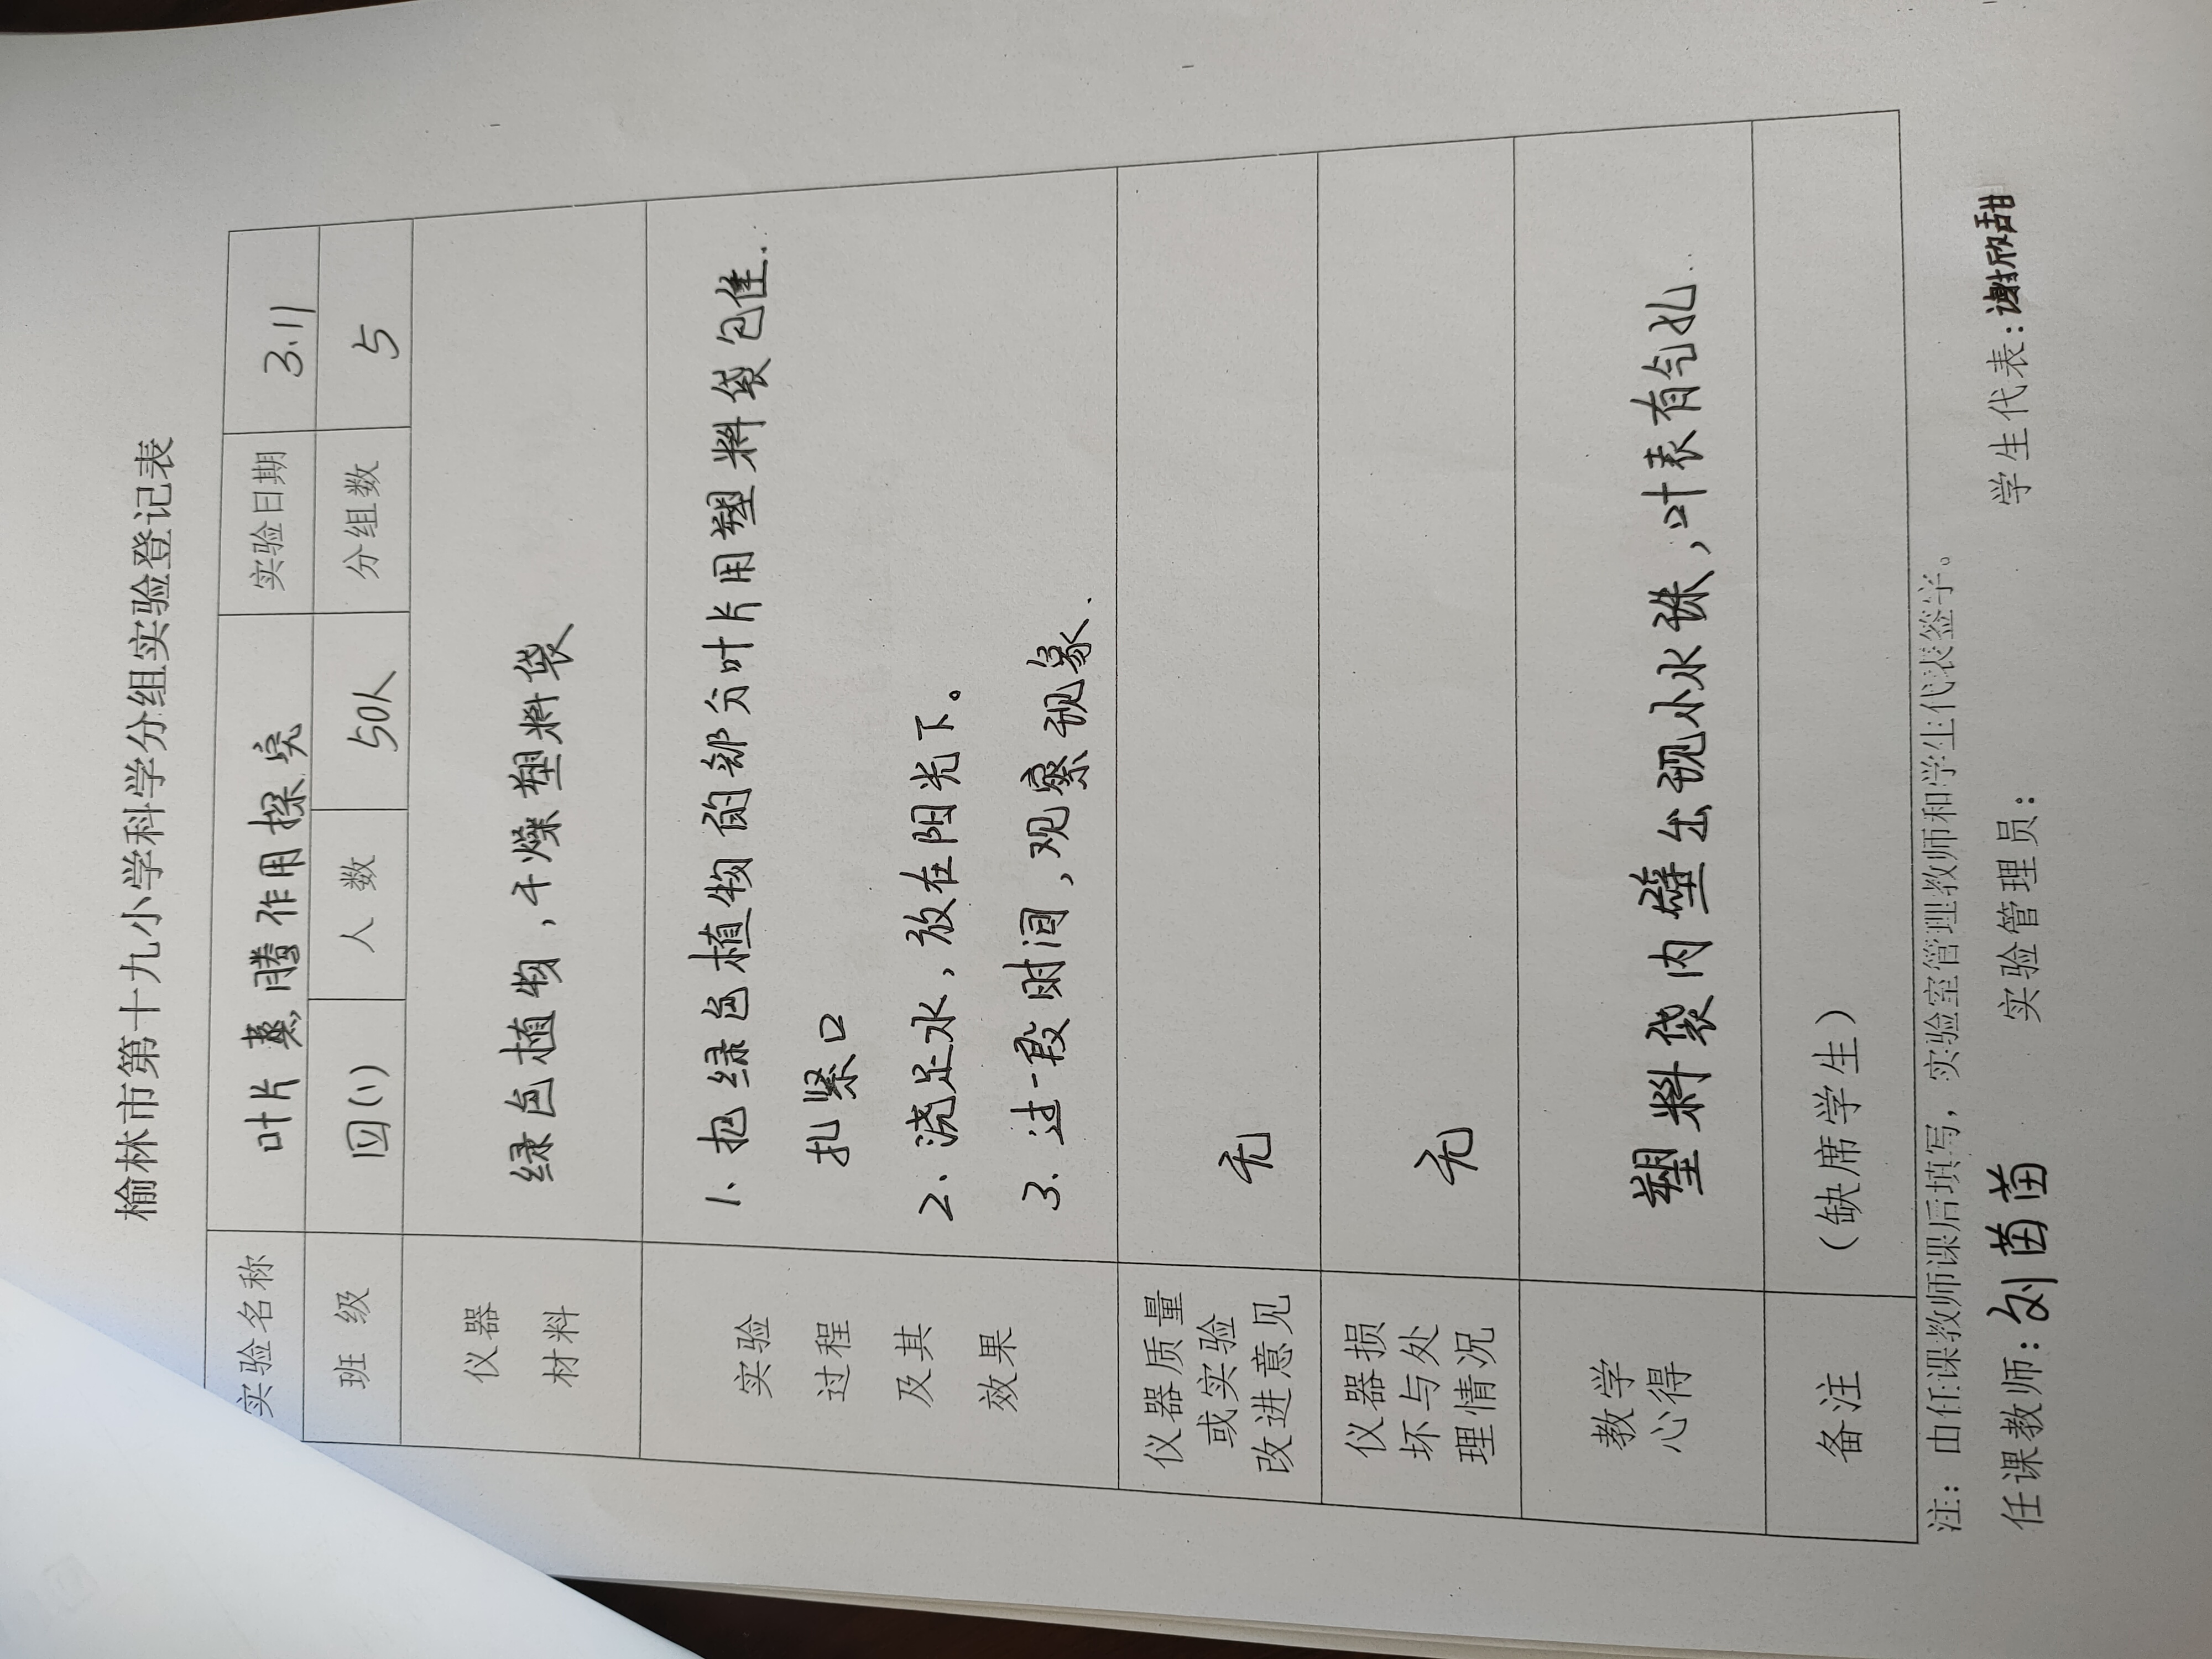 榆林市第十九小学科学分组实验登记表
实验名称 叶片蒸腾作用探究 实验日期 3.11
班 级 四(1) 人 数 50人 分组数 5
仪器
材料
绿色植物,干燥塑料袋
实验
过程
及其
效果
1. 把绿色植物的部分叶片用塑料袋包住.
扎紧口
2. 浇足水,放在阳光下。
3. 过一段时间,观察现象.
仪器质量
或实验
改进意见
无
仪器损
坏与处
理情况
无
教学
心得
塑料袋内壁出现小水珠,叶表有气孔.
备注
(缺席学生)
注:由任课教师课后填写,实验室管理教师和学生代表签字。
任课教师:刘苗苗 实验管理员: 学生代表:谢欣甜